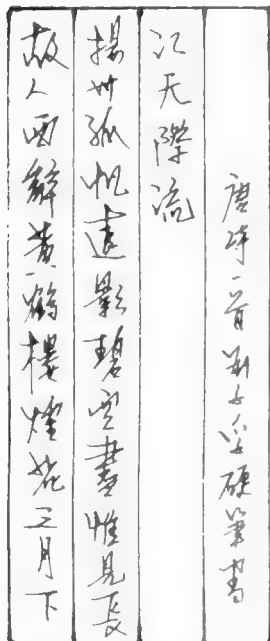 故人西辭黄鶴樓煙花三月下
揚州孤帆遠影碧空盡惟見長
江天際流
唐詩一首 硬筆書